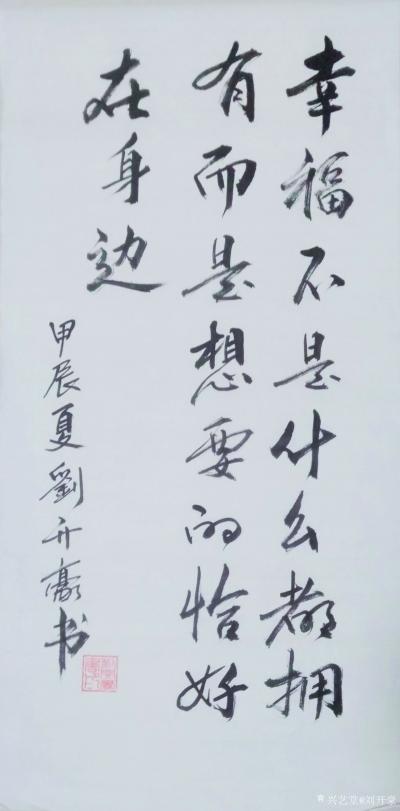 幸福不是什么都拥
有而是想要的恰好
在身边
甲辰夏劉开豪书
兴艺堂@刘开豪